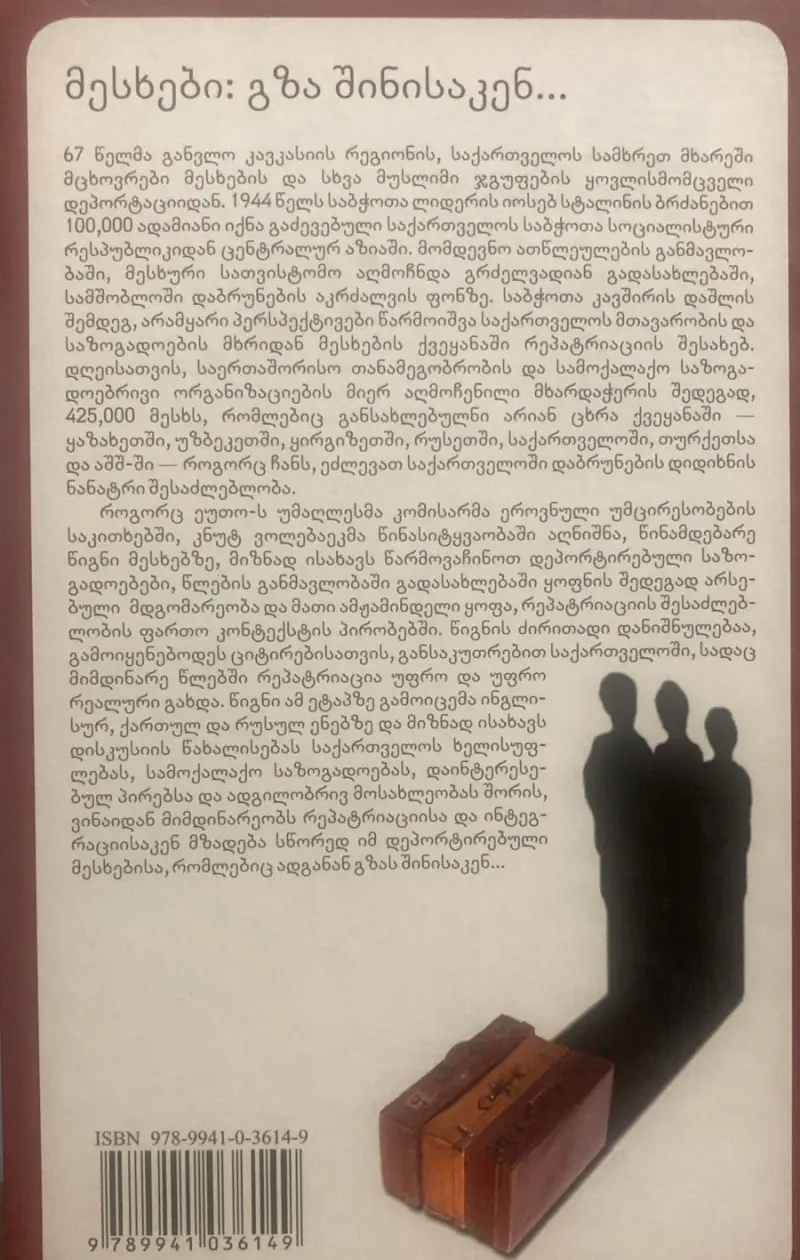 მესხები: გზა შინისაკენ...
67 წელმა განვლო კავკასიის რეგიონის, საქართველოს სამხრეთ მხარეში
მცხოვრები მესხების და სხვა მუსლიმი ჯგუფების ყოვლისმომცველი
დეპორტაციიდან. 1944 წელს საბჭოთა ლიდერის იოსებ სტალინის ბრძანებით
100,000 ადამიანი იქნა გაძევებული საქართველოს საბჭოთა სოციალისტური
რესპუბლიკიდან ცენტრალურ აზიაში. მომდევნო ათწლეულების განმავლო-
ბაში, მესხური სათვისტომო აღმოჩნდა გრძელვადიან გადასახლებაში,
სამშობლოში დაბრუნების აკრძალვის ფონზე. საბჭოთა კავშირის დაშლის
შემდეგ, არამყარი პერსპექტივები წარმოიშვა საქართველოს მთავარობის და
საზოგადოების მხრიდან მესხების ქვეყანაში რეპატრიაციის შესახებ.
დღეისათვის, საერთაშორისო თანამეგობრობის და სამოქალაქო საზოგა-
დოებრივი ორგანიზაციების მიერ აღმოჩენილი მხარდაჭერის შედეგად,
425,000 მესხს, რომლებიც განსახლებულნი არიან ცხრა ქვეყანაში —
ყაზახეთში, უზბეკეთში, ყირგიზეთში, რუსეთში, საქართველოში, თურქეთსა
და აშშ-ში — როგორც ჩანს, ეძლევათ საქართველოში დაბრუნების დიდიხნის
ნანატრი შესაძლებლობა.
როგორც ეუთო-ს უმაღლესმა კომისარმა ეროვნული უმცირესობების
საკითხებში, კნუტ ვოლებაეკმა წინასიტყვაობაში აღნიშნა, წინამდებარე
წიგნი მესხებზე, მიზნად ისახავს წარმოვაჩინოთ დეპორტირებული საზო-
გადოებები, წლების განმავლობაში გადასახლებაში ყოფნის შედეგად არსე-
ბული მდგომარეობა და მათი ამჟამინდელი ყოფა, რეპატრიაციის შესაძლებ-
ლობის ფართო კონტექსტის პირობებში. წიგნის ძირითადი დანიშნულებაა,
გამოიყენებოდეს ციტირებისათვის, განსაკუთრებით საქართველოში, სადაც
მიმდინარე წლებში რეპატრიაცია უფრო და უფრო
რეალური გახდა. წიგნი ამ ეტაპზე გამოიცემა ინგლი-
სურ, ქართულ და რუსულ ენებზე და მიზნად ისახავს
დისკუსიის წახალისებას საქართველოს ხელისუფ-
ლებას, სამოქალაქო საზოგადოებას, დაინტერესე-
ბულ პირებსა და ადგილობრივ მოსახლეობას შორის,
ვინაიდან მიმდინარეობს რეპატრიაციისა და ინტეგ-
რაციისაკენ მზადება სწორედ იმ დეპორტირებული
მესხებისა, რომლებიც ადგანან გზას შინისაკენ...
ISBN 978-9941-0-3614-9
9 789941 036149